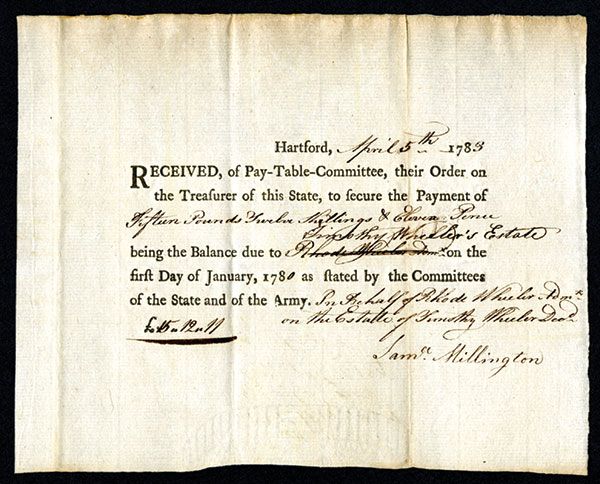 Hartford, April 5th 1783
RECEIVED, of Pay-Table-Committee, their Order on
the Treaſurer of this State, to ſecure the Payment of
Fifteen Pounds Twelve Shillings & Eleven Pence
Timothy Wheeler's Estate
being the Balance due to Rhode Wheeler Admx on the
firſt Day of January, 1780 as ſtated by the Committees
of the State and of the Army. In Behalf of Rhode Wheeler Admx
£15 " 12 " 11 on the Estate of Timothy Wheeler Decd
Saml. Millington